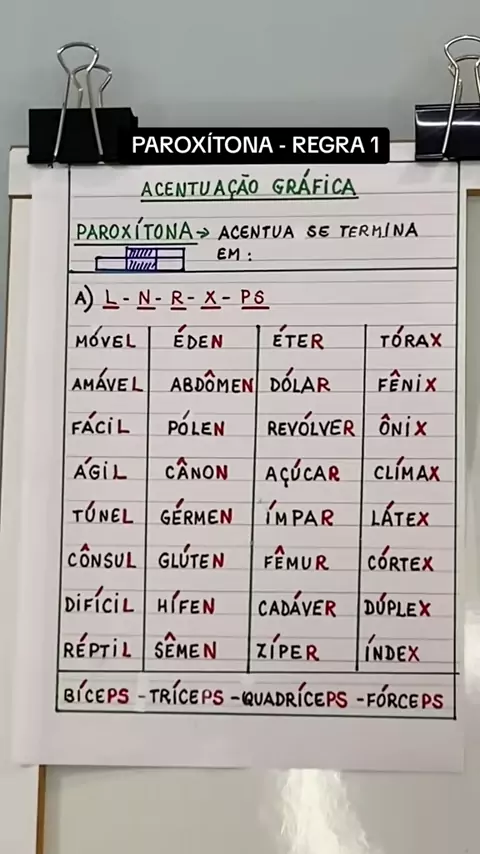 PAROXÍTONA - REGRA 1
ACENTUAÇÃO GRÁFICA
PAROXÍTONA → ACENTUA SE TERMINA
EM :
A) L - N - R - X - PS
MÓVEL ÉDEN ÉTER TÓRAX
AMÁVEL ABDÔMEN DÓLAR FÊNIX
FÁCIL PÓLEN REVÓLVER ÔNIX
ÁGIL CÂNON AÇÚCAR CLÍMAX
TÚNEL GÉRMEN ÍMPAR LÁTEX
CÔNSUL GLÚTEN FÊMUR CÓRTEX
DIFÍCIL HÍFEN CADÁVER DÚPLEX
RÉPTIL SÊMEN ZÍPER ÍNDEX
BÍCEPS - TRÍCEPS - QUADRÍCEPS - FÓRCEPS